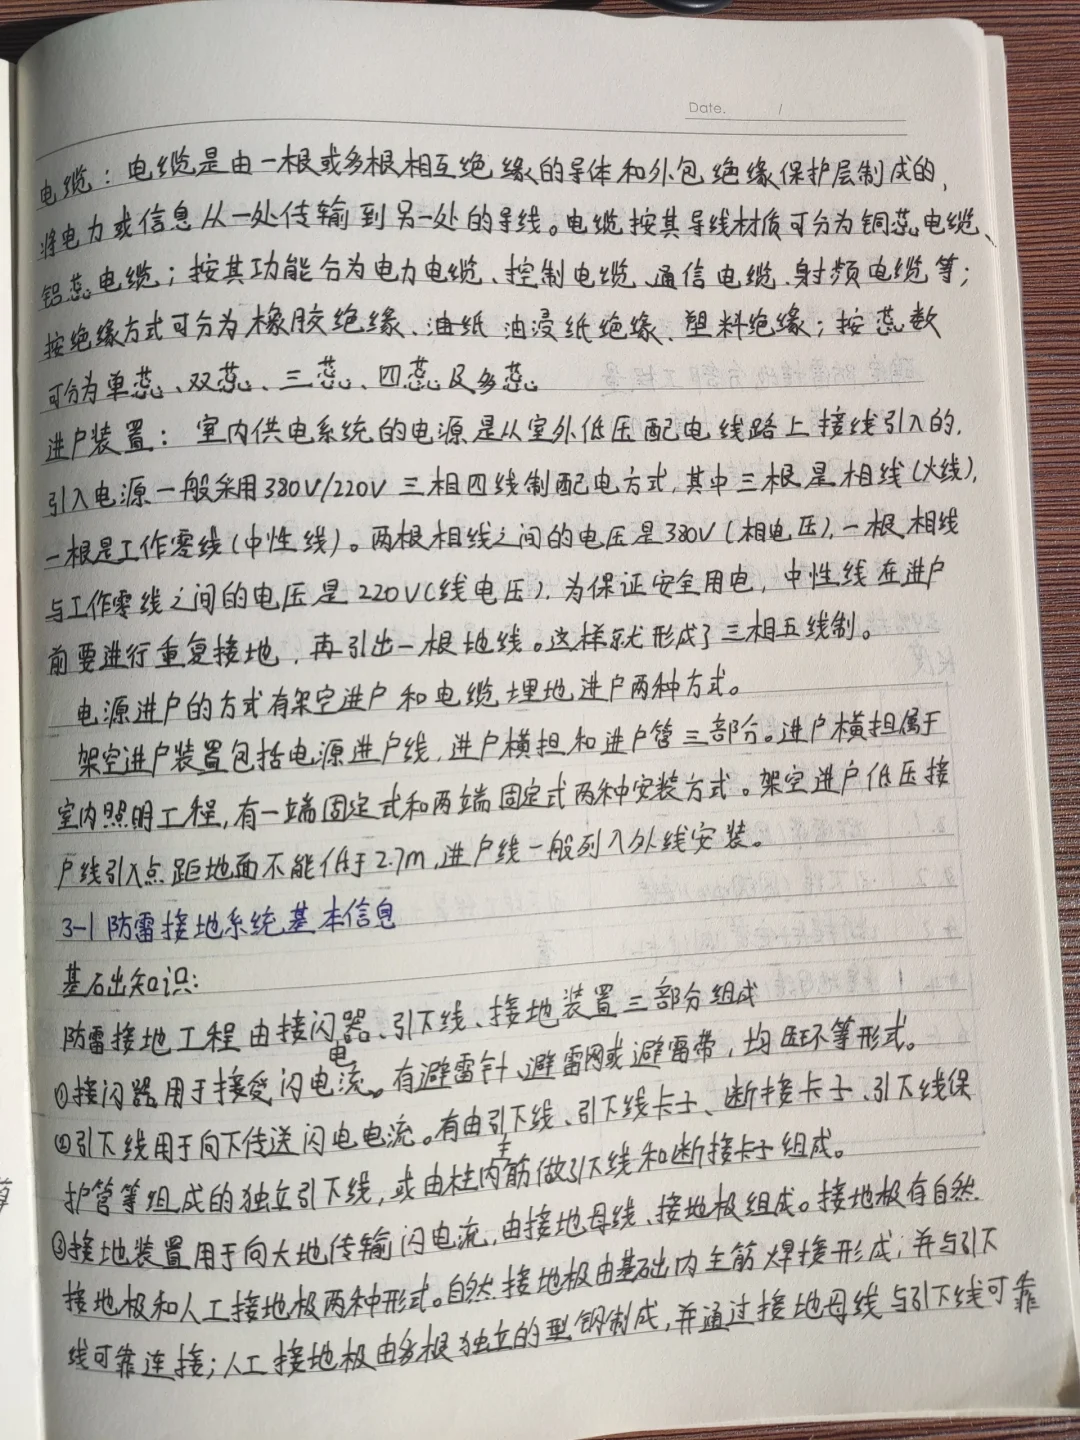 Date. /
电缆：电缆是由一根或多根相互绝缘的导体和外包绝缘保护层制成的，
将电力或信息从一处传输到另一处的导线。电缆按其导线材质可分为铜蕊电缆、
铝蕊电缆；按其功能分为电力电缆、控制电缆、通信电缆、射频电缆等；
按绝缘方式可分为橡胶绝缘、油纸 油浸纸绝缘、塑料绝缘；按蕊数
可分为单蕊、双蕊、三蕊、四蕊及多蕊。
进户装置：室内供电系统的电源是从室外低压配电线路上接线引入的，
引入电源一般采用380V/220V 三相四线制配电方式，其中三根是相线(火线)，
一根是工作零线(中性线)。两根相线之间的电压是380V(相电压)，一根相线
与工作零线之间的电压是220V(线电压)，为保证安全用电，中性线在进户
前要进行重复接地，再引出一根地线。这样就形成了三相五线制。
电源进户的方式有架空进户和电缆埋地进户两种方式。
架空进户装置包括电源进户线，进户横担和进户管三部分。进户横担属于
室内照明工程，有一端固定式和两端固定式两种安装方式。架空进户低压接
户线引入点距地面不能低于2.7m，进户线一般列入外线安装。
3-1 防雷接地系统基本信息
基础知识：
防雷接地工程由接闪器、引下线、接地装置三部分组成
①接闪器用于接受闪电电流。有避雷针、避雷网或避雷带，均压环等形式。
②引下线用于向下传送闪电电流。有由引下线、引下线卡子、断接卡子、引下线保
护管等组成的独立引下线，或由柱内主筋做引下线和断接卡子组成。
③接地装置用于向大地传输闪电流，由接地母线、接地极组成。接地极有自然
接地极和人工接地极两种形式。自然接地极由基础内主筋焊接形成；并与引下
线可靠连接；人工接地极由多根独立的型钢制成，并通过接地母线与引下线可靠